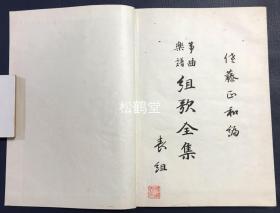 佐藤正和編
箏曲
樂譜
組歌全集
表組
松鹤堂